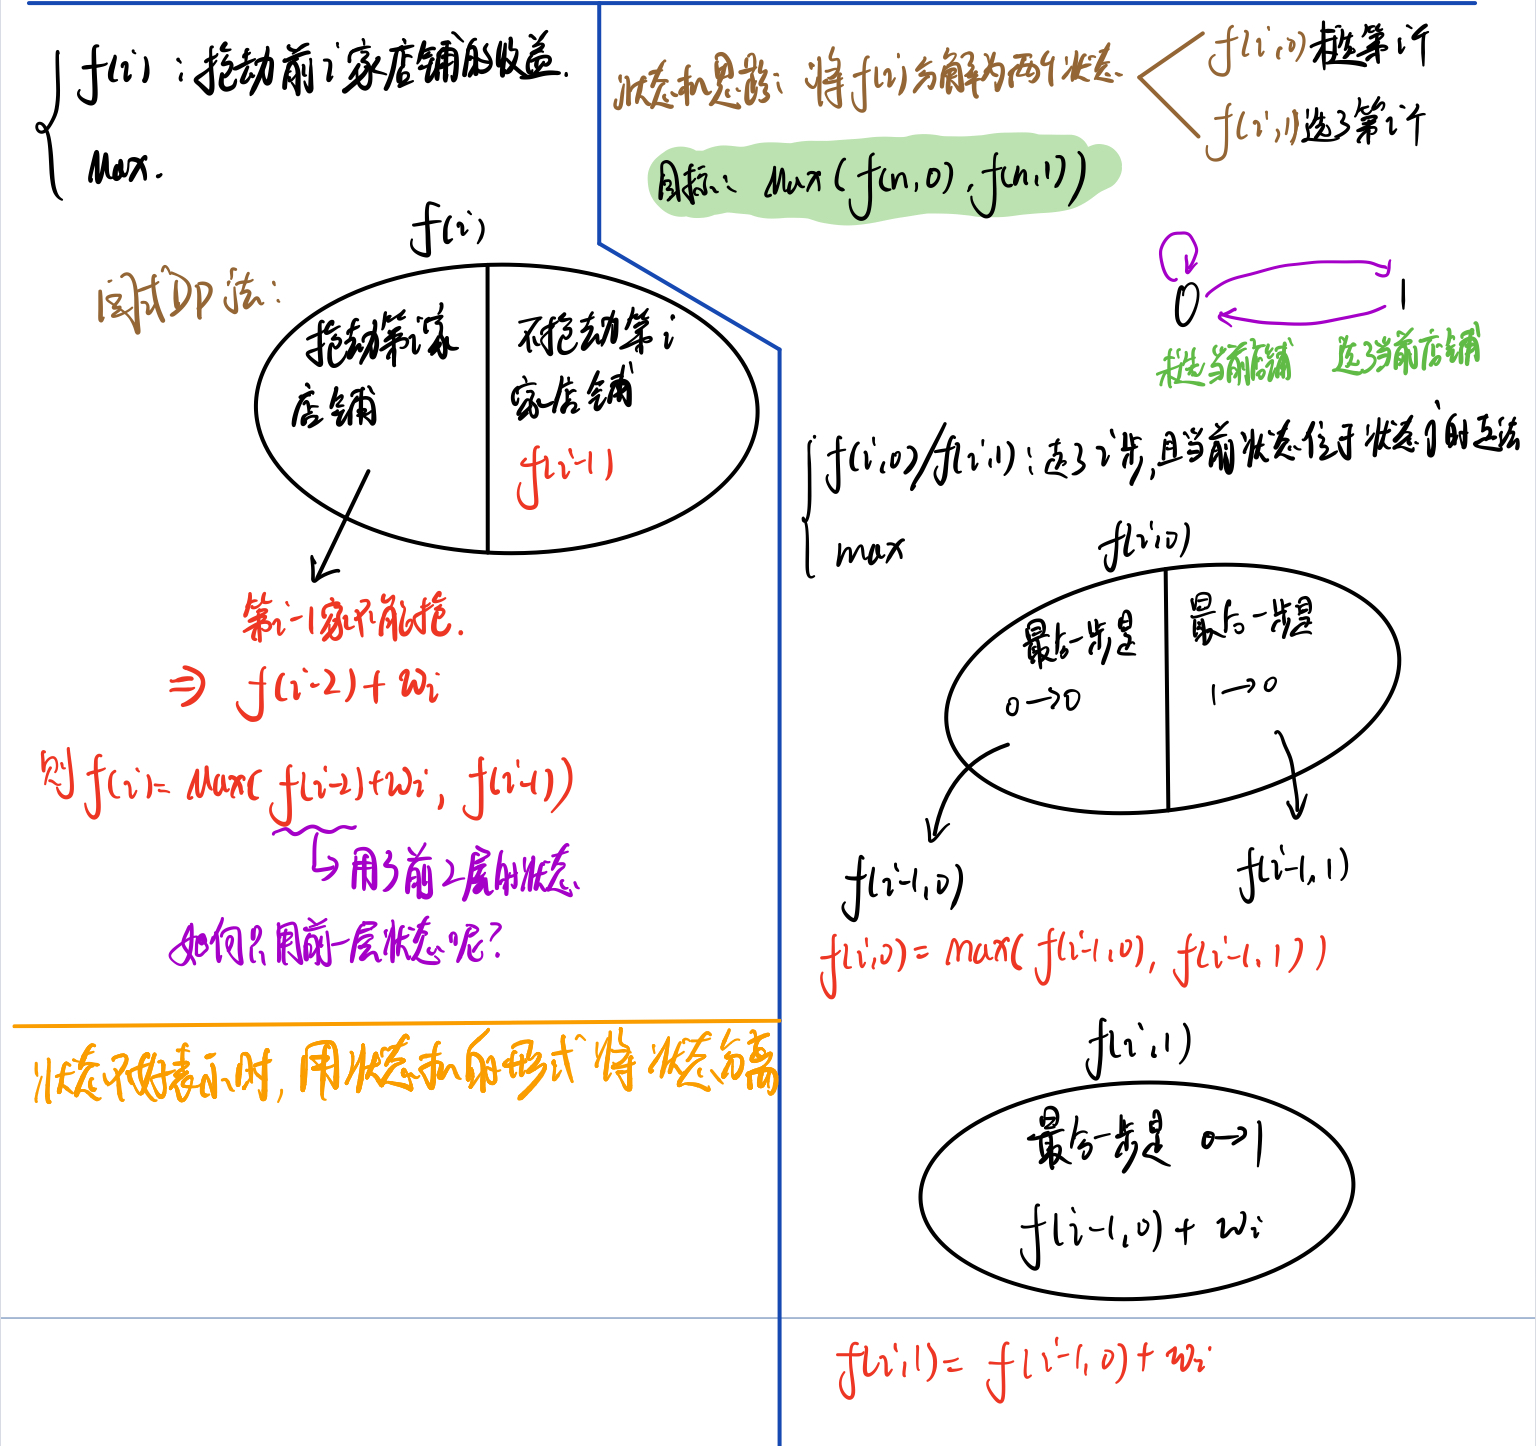 f(i)：抢劫前i家店铺的收益.
Max.
f(i)
闫式DP法：
抢劫第i家
店铺
不抢劫第i
家店铺
f(i-1)
第i-1家不能抢.
⇒ f(i-2)+wi
则 f(i)= Max( f(i-2)+wi, f(i-1))
用了前2层的状态
如何只用前一层状态呢?
状态不好表示时, 用状态机的形式将状态分离
状态机思路：将f(i)分解为两个状态
f(i,0) 未选第i个
f(i,1) 选了第i个
目标：Max(f(n,0), f(n,1))
0 1
未选当前店铺 选了当前店铺
f(i,0)/f(i,1)：走了i步,且当前状态位于状态j的走法
max
f(i,0)
最后一步是
0→0
最后一步是
1→0
f(i-1,0)
f(i-1,1)
f(i,0)= max( f(i-1,0), f(i-1,1))
f(i,1)
最后一步是 0→1
f(i-1,0)+ wi
f(i,1)= f(i-1,0)+ wi